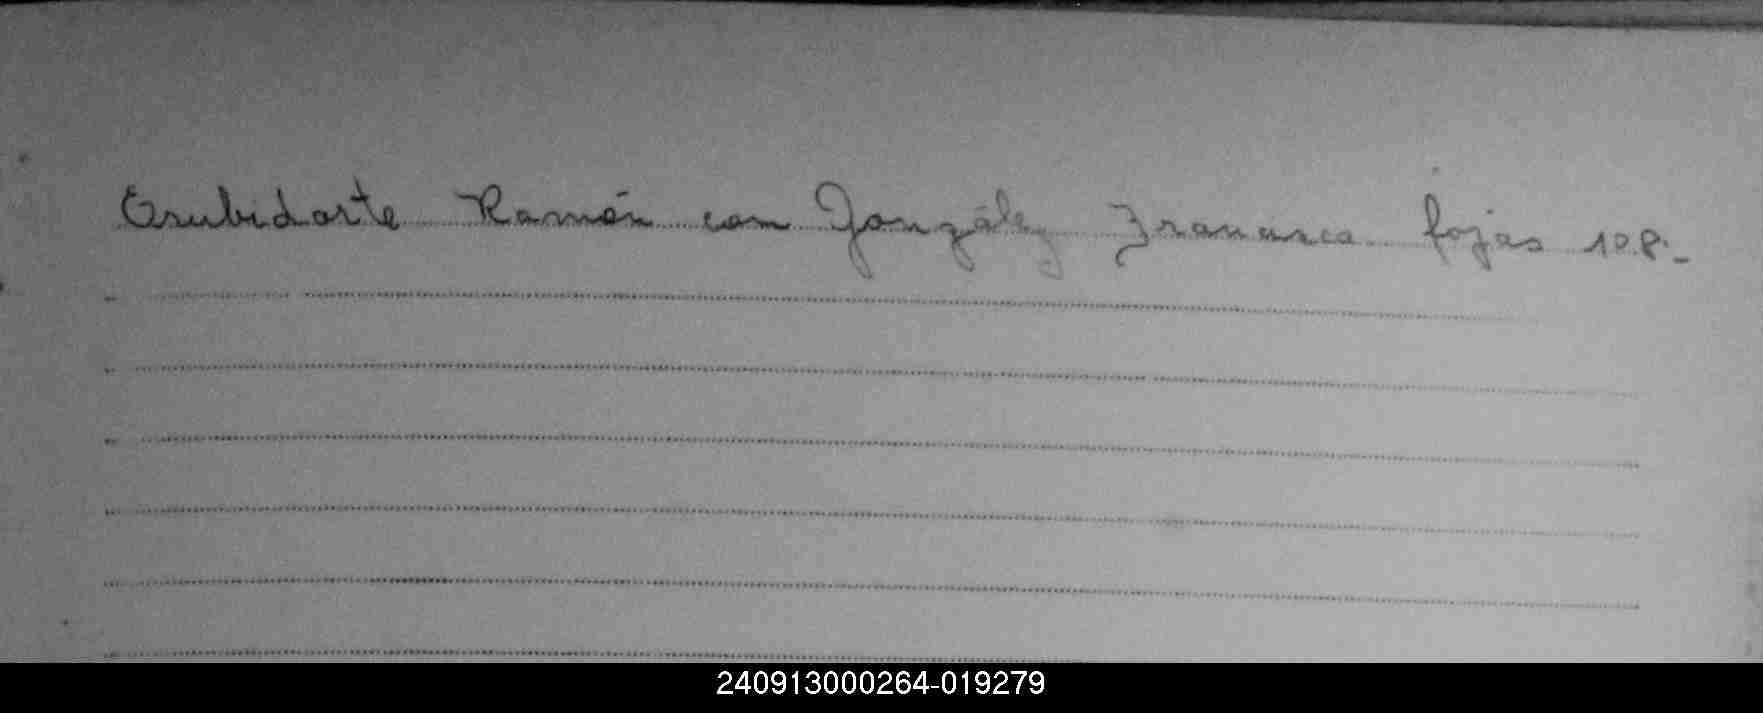 Osubidarte Ramón con González Francisca fojas 108.-
240913000264-019279